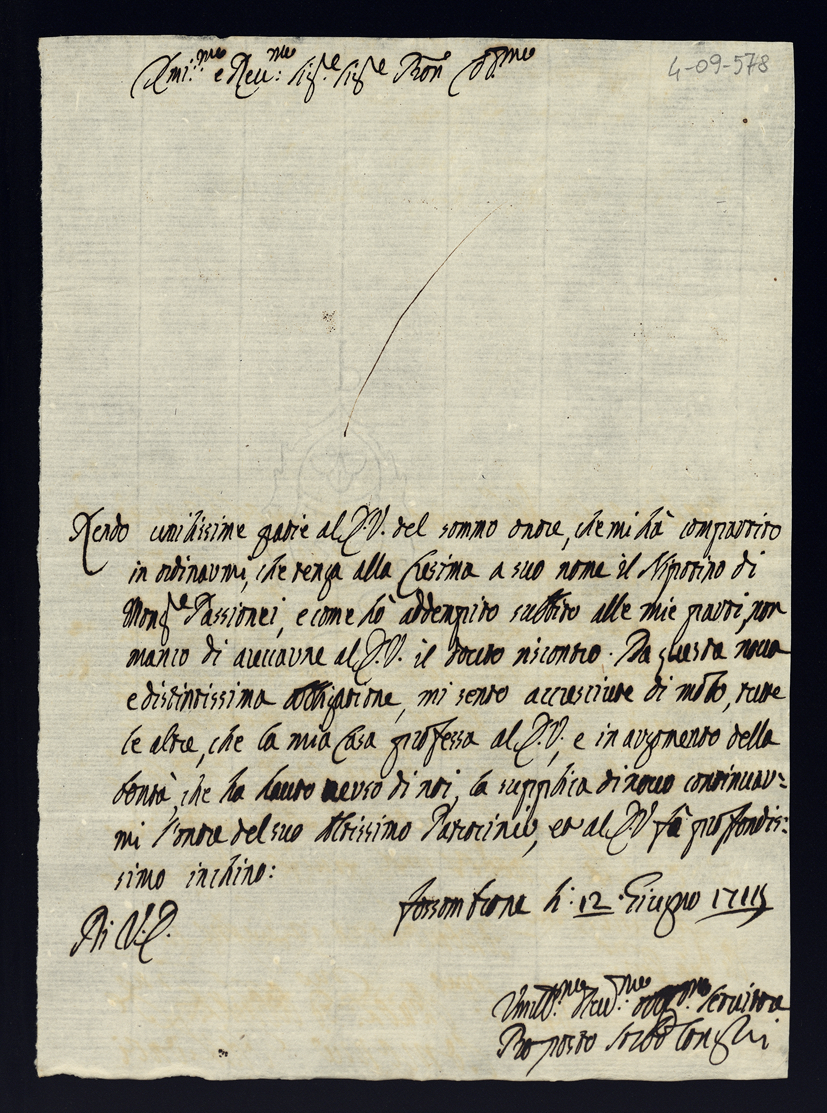 4-09-578
Em.mo e Rev.mo Sig.e Sig.e Pron
Rendo umilissime gratie al E.V. del sommo onore, che mi hà compartito
in ordinarmi, che tenga alla Cresima a suo nome il Nipotino di
Mong.e Passionei, e come hò addempito subbito alle mie parti, non
manco di avvicarne al E.V. il dovuto riscontro. Da questa nova
e distintissima obbligatione, mi sento accresciute di molto, tutte
le altre, che la mia Casa professa al E.V., e in augmento della
bontà, che ha hauto verso di noi, la supplica di novo continuar=
mi l'onore del suo Altissimo Patrocinio, et al E.V. fà profondis=
simo inchino:
fossombrone li: 12. Giugno
Di V.E.
Umill.mo Rev.mo Servitore
Proposto